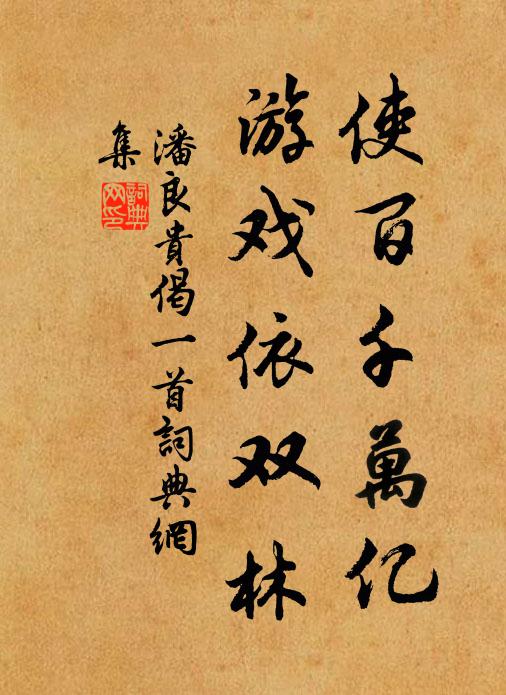 使百千萬亿
游戏依双林
潘良貴偈一首詞典網
集
詞典网印